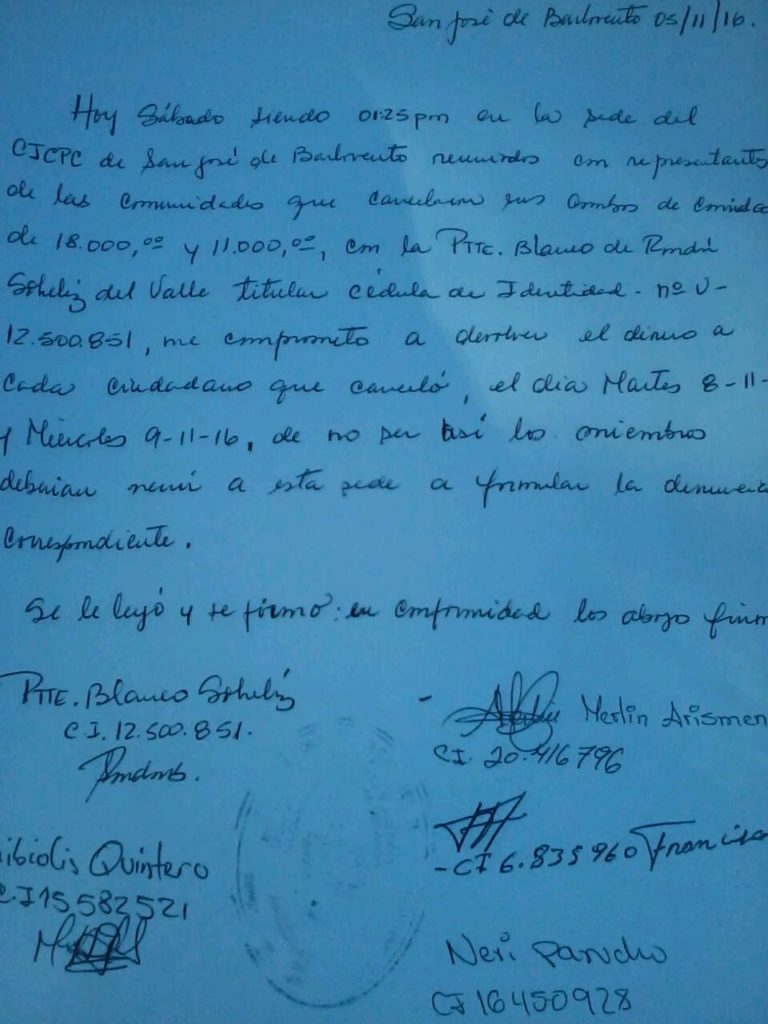 San José de Barlovento 05/11/16.
Hoy Sábado siendo 01:25pm en la sede del
CICPC de San José de Barlovento reunidos con representantes
de las comunidades que cancelaron sus combos de comidas
de 18.000,00 y 11.000,00, con la PTTE. Blanco de
del Valle titular cédula de Identidad. nº V-
12.500.851, me comprometo a devolver el dinero a
cada ciudadano que canceló, el dia Martes 8-11-
y Miércoles 9-11-16, de no ser así los miembros
deberian a esta sede a formular la denuncia
correspondiente.
Se le leyó y se firmó: en conformidad los abajo firm
PTTE. Blanco
C.I. 12.500.851.
Merlin Arismen
CI. 20.416796
- CI 6.835960 Francisc
Quintero
C.I 15582521
Neri
CI 16450928